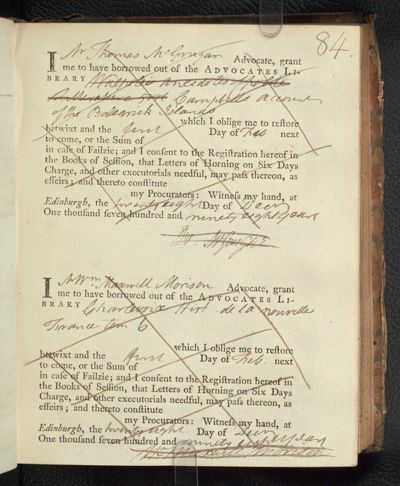 84
I Mr Thomas McGrugar Advocate, grant
me to have borrowed out of the ADVOCATES LI-
BRARY Walpoles anecdotes
Campbells account
of the Balearick Islands
which I oblige me to restore
betwixt and the first Day of Feb next
to come, or the Sum of
in case of Failzie; and I consent to the Registration hereof in
the Books of Session, that Letters of Horning on Six Days
Charge, and other executorials needful, may pass thereon, as
effeirs; and thereto constitute
my Procurators: Witness my hand, at
Edinburgh, the twenty eight Day of Decr
One thousand seven hundred and ninety eight years
I Mr Wm Maxwell Morison Advocate, grant
me to have borrowed out of the ADVOCATES LI-
BRARY Charlevoix Hist. de la nouvelle
France tom 6
which I oblige me to restore
betwixt and the first Day of Feb. next
to come, or the Sum of
in case of Failzie; and I consent to the Registration hereof in
the Books of Session, that Letters of Horning on Six Days
Charge, and other executorials needful, may pass thereon, as
effeirs; and thereto constitute
my Procurators: Witness my hand, at
Edinburgh, the twenty eight Day of Decr
One thousand seven hundred and ninety eight years
Wm Maxwell Morison